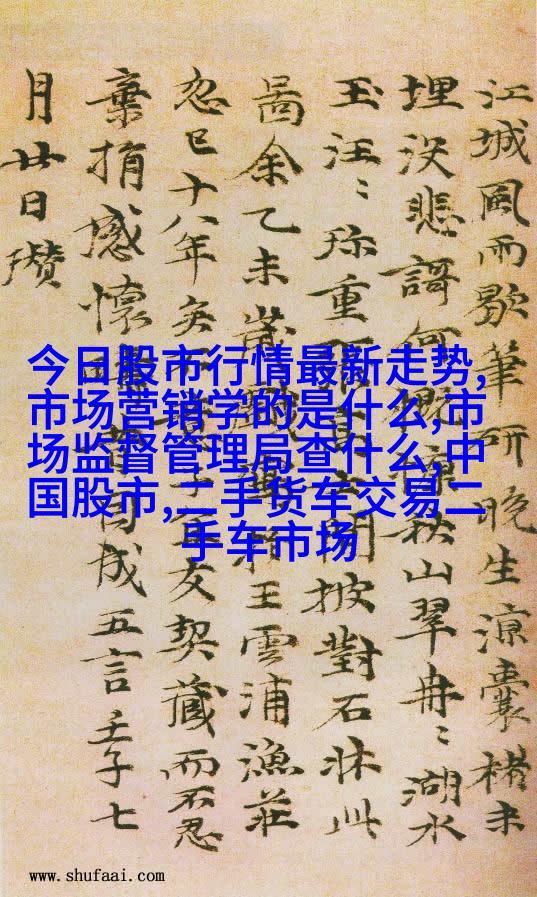 今日股市行情最新走势,
市场营销学的是什么,市
场监督管理局查什么,中
国股市,二手货车交易二
手车市场
江城風雨歇筆研晚生涼囊楮未
埋沒悲謌何慨慷秋山翠冉〻湖水
玉汪〻珎重士閒披對石牀此
啚余乙未歲戲寫於王雲浦漁莊
忽已十八年矣不意子宜友契藏而不忍
棄捐感懷疇昔因成五言壬子七
月廿日瓚
www.shufaai.com